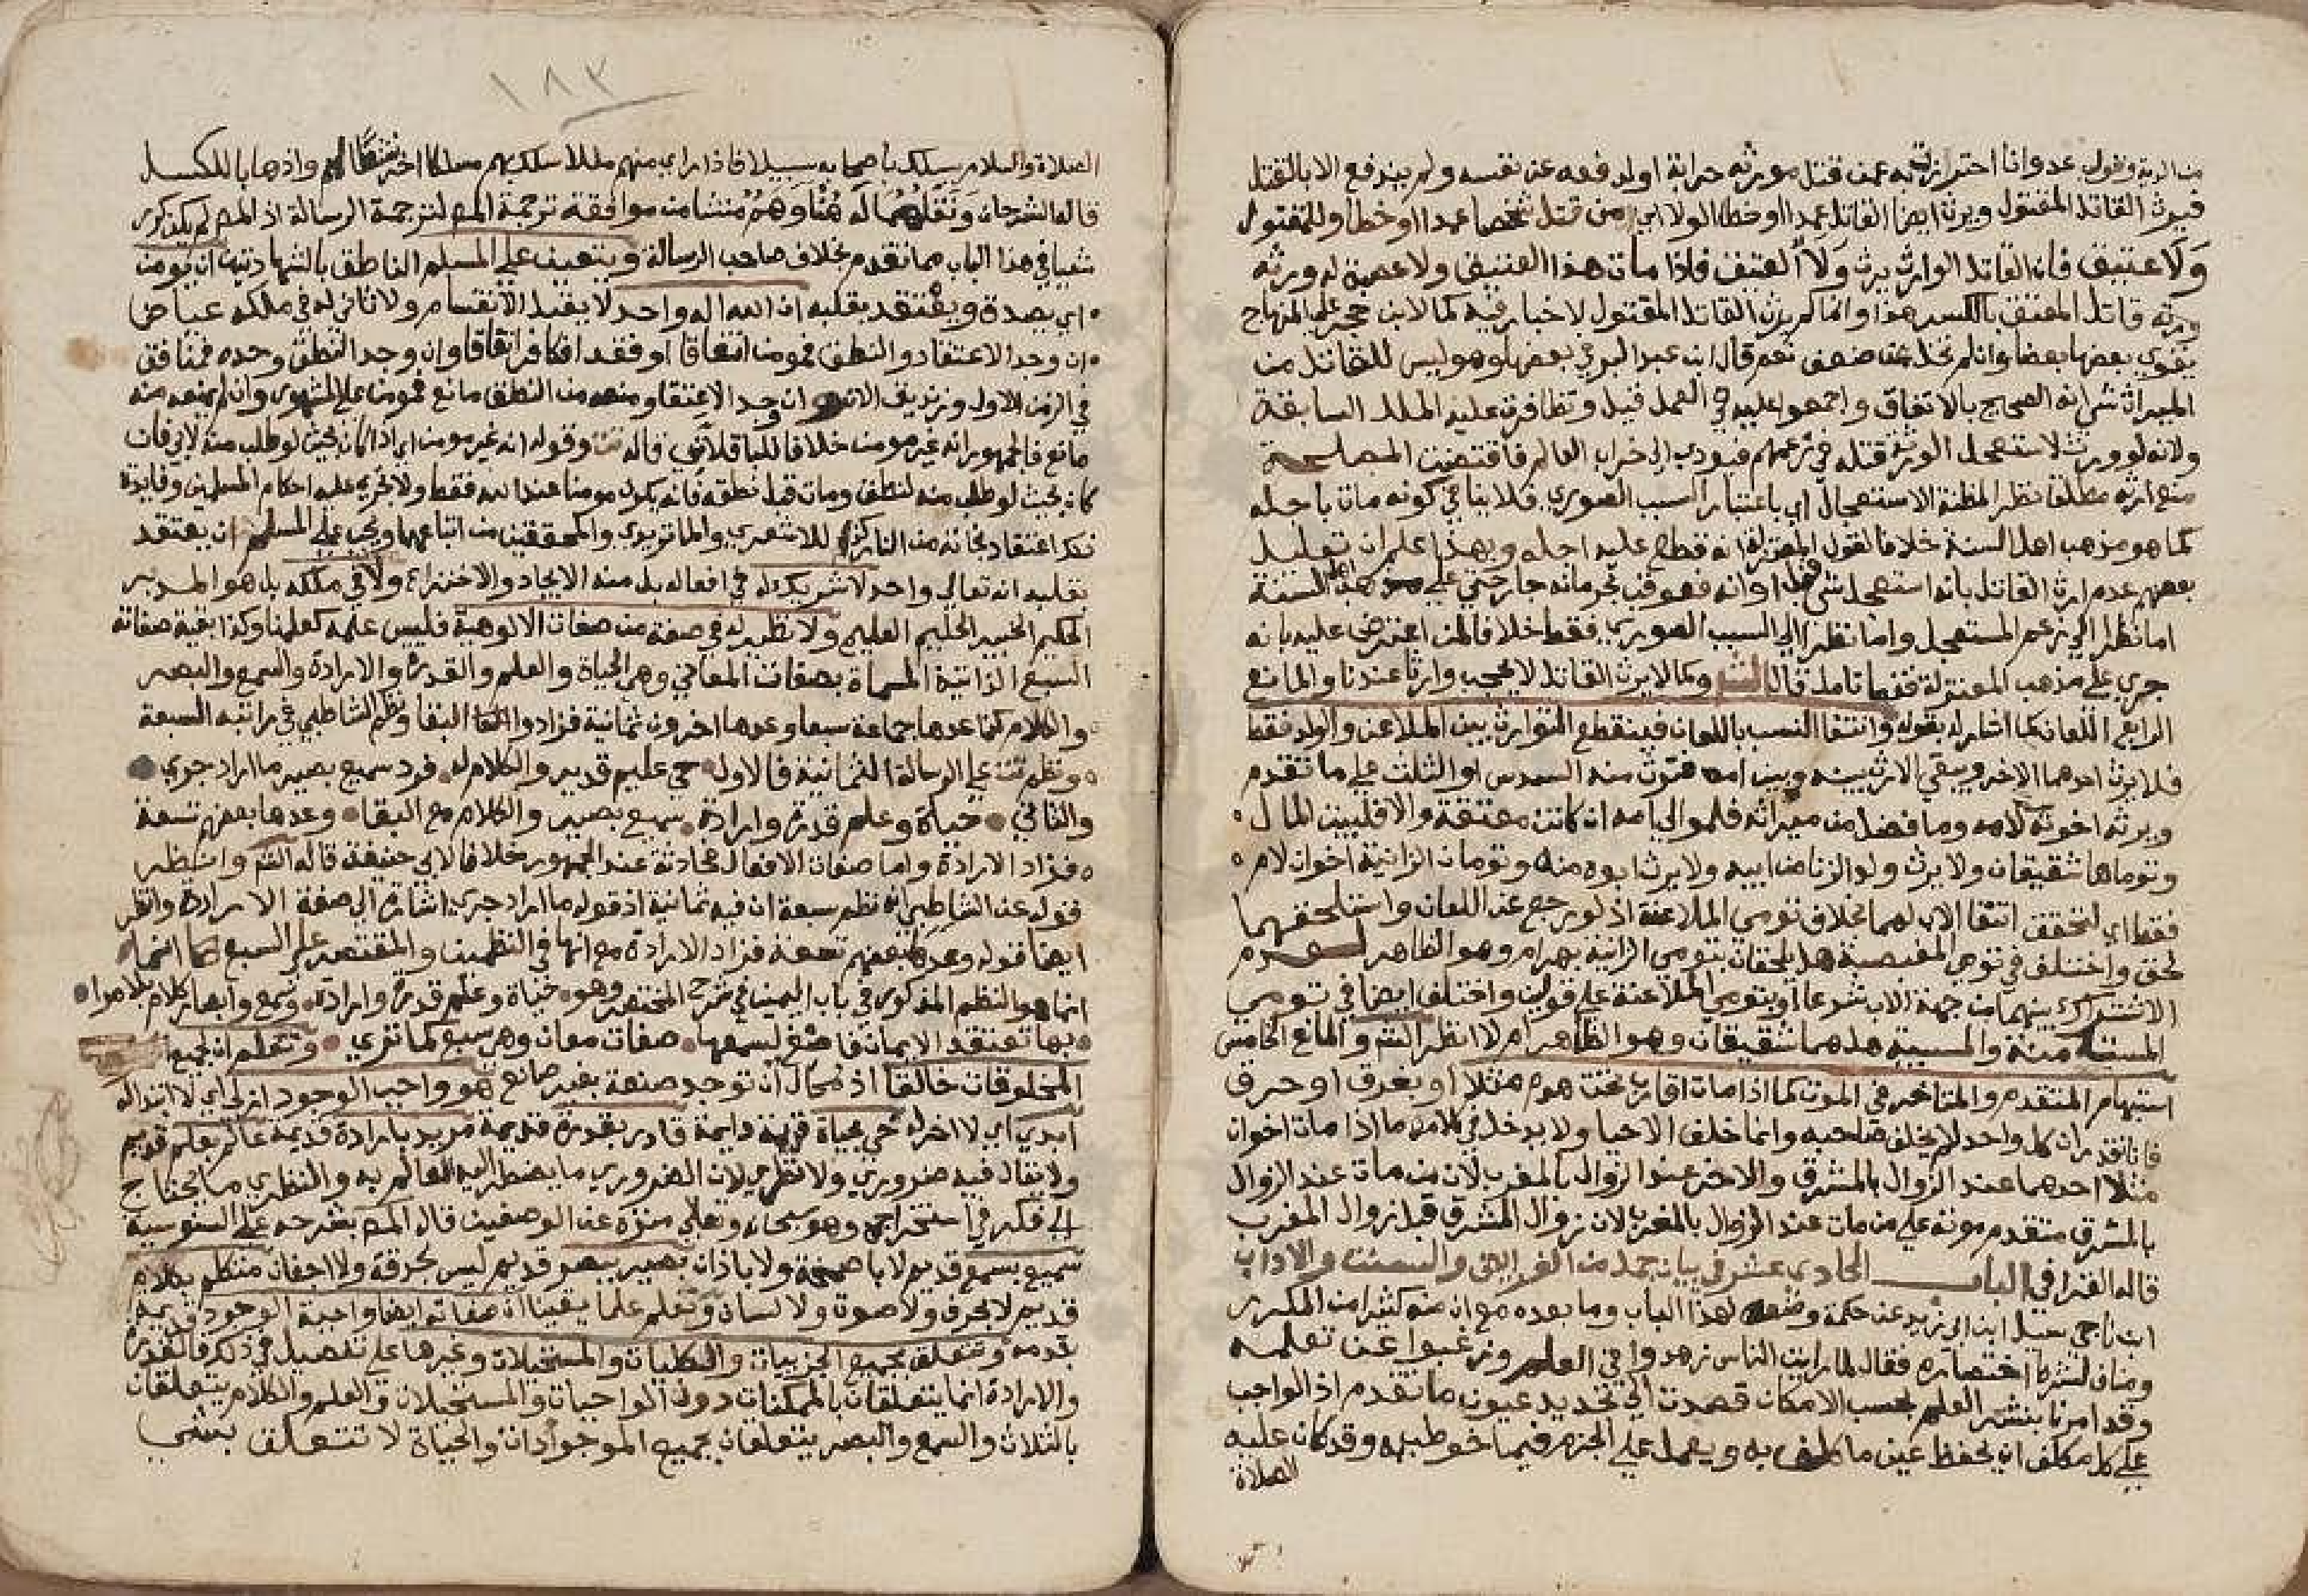 من الدية وبقوله عدوانا احترز به عمن قتل مورثه حرابة اولدفعه عن نفسه ولم يندفع الا بالقتل
فيرث القاتل المقتول ويرث ايضا القاتل عمدا او خطا الولا اي من قتل شخصا عمدا او خطا وللمقتول
ولا عتيق فان القاتل الوارث يرث ولا العتيق فاذا مات هذا العتيق ولا عصبة له ورثه
ورثة قاتل المعتق بالكسر هذا وانما لم يرث القاتل المقتول لاخبار فيه كما لابن حجر على المنهاج
يقوي بعضها بعضا وان لم تخل من ضعف نعم قال ابن عبد البر في بعضها وهو ليس للقاتل من
الميراث شي انه الصحيح بالاتفاق واجمعوا عليه في العمد قيل وتظافرت عليه الملل السابقة
ولانه لو ورث لاستعجل الورثة قتله في زعمهم فيودي الى خراب العالم فاقتضت المصلحة
منع ارثه مطلقا نظرا لمظنة الاستعجال اي باعتبار السبب الصوري فلا ينافي كونه مات باجله
كما هو مذهب اهل السنة خلافا لقول المعتزلة انه قطع عليه اجله وبهذا علم ان تعليل
بعضهم عدم ارث القاتل بانه استعجل شي قبل اوانه فعوقب بحرمانه جار حتى على مذهب اهل السنة
اما نظرا الى زعم المستعجل واما نظرا الى السبب الصوري فقط خلافا لمن اعترض عليه بانه
جري على مذهب المعتزلة فقط تامل قال التت وكما لا يرث القاتل لا يحجب وارثا عندنا والمانع
الرابع اللعان كما اشار له بقوله وانتفا النسب باللعان فينقطع التوارث بين الملاعن والولد فقط
فلا يرث احدهما الاخر ويبقي الارث بينه وبين امه فترث منه السدس او الثلث على ما تقدم
ويرثه اخوته لامه وما فضل من ميراثه فلموالي امه ان كانت معتقة والا فلبيت المال
وتوماها شقيقان ولا يرث ولد الزنا من ابيه ولا يرث ابوه منه وتومان الزانية اخوان لام
فقط اي لتحقق انتفا الاب لهما بخلاف تومي الملاعنة اذ لو رجع عن اللعان واستلحقهما
لحق واختلف في تومي المغتصبة هل يلحقان بتومي الزانية بهرام وهو الظاهر لعدم
الاشتراك بينهما من جهة الاب شرعا او بتومي الملاعنة على قولين واختلف ايضا في تومي
المستامنة والمسبية هل هما شقيقان وهو الظاهر ام لا انظر التت والمانع الخامس
استبهام المتقدم والمتاخر في الموت كما اذا مات اقارب تحت هدم مثلا او بغرق او حرق
فانا نقدر ان كل واحد لم يخلف صاحبه وانما خلف الاحيا ولا يدخل في كلامه ما اذا مات اخوان
مثلا احدهما عند الزوال بالمشرق والاخر عند الزوال بالمغرب لان من مات عند الزوال
بالمشرق متقدم موته على من مات عند الزوال بالمغرب لان زوال المشرق قبل زوال المغرب
قاله القرافي الباب الحادي عشر في بيان جمل من الفرايض والسنن والاداب
ابن ناجي سيل ابن ابي زيد عن حكمة وضعه لهذا الباب وما بعده مع ان منه كثيرا من المكرر
ومناف لشرط اختصاره فقال لما رايت الناس زهدوا في العلم ورغبوا عن تعلمه
وقد امرنا بنشر العلم بحسب الامكان قصدت الى تجديد عيون ما تقدم اذ الواجب
على كل مكلف ان يحفظ عين ما كلف به ويعمل على الجزم فيما خوطب به وقد كان عليه
الصلاة
١٨٣
الصلاة والسلام يسلك باصحابه سبيلا فاذا راي منهم مللا سلك بهم مسلكا اخر تنشيطا لهم واذهابا للكسل
قاله الشرحان ونقلهما له هنا وهم منشا من موافقة ترجمة المص لترجمة الرسالة اذ المص لم يكن ذكر
شيا في هذا الباب مما تقدم بخلاف صاحب الرسالة ويتعين على المسلم الناطق بالشهادتين ان يومن
اي يصدق ويعتقد بقلبه ان الله اله واحد لا يقبل الانقسام ولا ثاني له في ملكه عياض
ان وجد الاعتقاد والنطق فمومن اتفاقا او فقدا فكافر اتفاقا وان وجد النطق وحده فمنافق
في الزمن الاول وزنديق الان وان وجد الاعتقاد ومنعه من النطق مانع فمومن على المشهور وان لم يمنعه منه
مانع فالجمهور انه غير مومن خلافا للباقلاني قاله تت وقوله انه غير مومن اي اذا كان بحيث لو طلب منه لابى فان
كان بحيث لو طلب منه لنطق ومات قبل نطقه فانه يكون مومنا عند الله فقط ولا تجري عليه احكام المسلمين وفايدة
ذكر اعتقاد نجاته من النار كذا للاشعري والماتريدي والمحققين من اتباعهما ويجب على المسلم ان يعتقد
بقلبه انه تعالى واحد لا شريك له في افعاله بل منه الايجاد والاختراع ولا في ملكه بل هو المدبر
الحكيم الخبير الحليم العليم ولا نظير له في صفة من صفات الالوهية فليس علمه كعلمنا وكذا بقية صفاته
السبع الذاتية المسماة بصفات المعاني وهي الحياة والعلم والقدرة والارادة والسمع والبصر
والكلام كذا عدها جماعة سبعا وعدها اخرون ثمانية فزادوا البقا ونظم الشاطبي في رائيته السبعة
ونظم تت على الرسالة الثمانية فالاول حي عليم قدير والكلام له فرد سميع بصير ما اراد جري
والثاني حياة وعلم قدرة وارادة سميع بصير والكلام مع البقا وعدها بعضهم تسعة
فزاد الارادة واما صفات الافعال فحادثة عند الجمهور خلافا لابي حنيفة قاله التت وانظر
قوله عن الشاطبي انه نظم سبعة ان فيه ثمانية اذ قوله ما اراد جري اشارة الى صفة الارادة وانظر
ايضا قوله وعدها بعضهم تسعة فزاد الارادة مع انها في النظمين والمقتصر على السبع كما
انما هو النظم المذكور في باب اليمين في شرح المختصر وهو حياة وعلم قدرة وارادة وسمع وابصار كلام بلا مرا
بها تعتقد الايمان فاصغ لسمعها صفات معان وهي سبع كما تري وتعلم ان لجميع
المخلوقات خالقا اذ محال ان توجد صنعة بغير صانع هو واجب الوجود ازلي اي لا ابتدا له
ابدي اي لا اخر له حي بحياة قديمة دايمة قادر بقدرة قديمة مريد بارادة قديمة عالم بعلم قديم
ولا يقال فيه ضروري ولا نظري لان الضروري ما يضطر اليه العالم به والنظري ما يحتاج
الى فكر في استخراجه وهو سبحانه وتعالى منزه عن الوصفين قاله المص بشرحه على السنوسية
سميع بسمع قديم لا باصمخة ولا باذان بصير ببصر قديم ليس بحدقة ولا اجفان متكلم بكلام
قديم لا بحرف ولا صوت ولا لسان وتعلم علما يقينا ان صفاته ايضا واجبة الوجود قديمة
بقدمه وتتعلق بجميع الجزييات والكليات والمستحيلات وغيرها على تفصيل في ذلك فالقدرة
والارادة انما يتعلقان بالممكنات دون الواجبات والمستحيلات والعلم والكلام يتعلقان
بالثلاث والسمع والبصر يتعلقان بجميع الموجودات والحياة لا تتعلق بشي